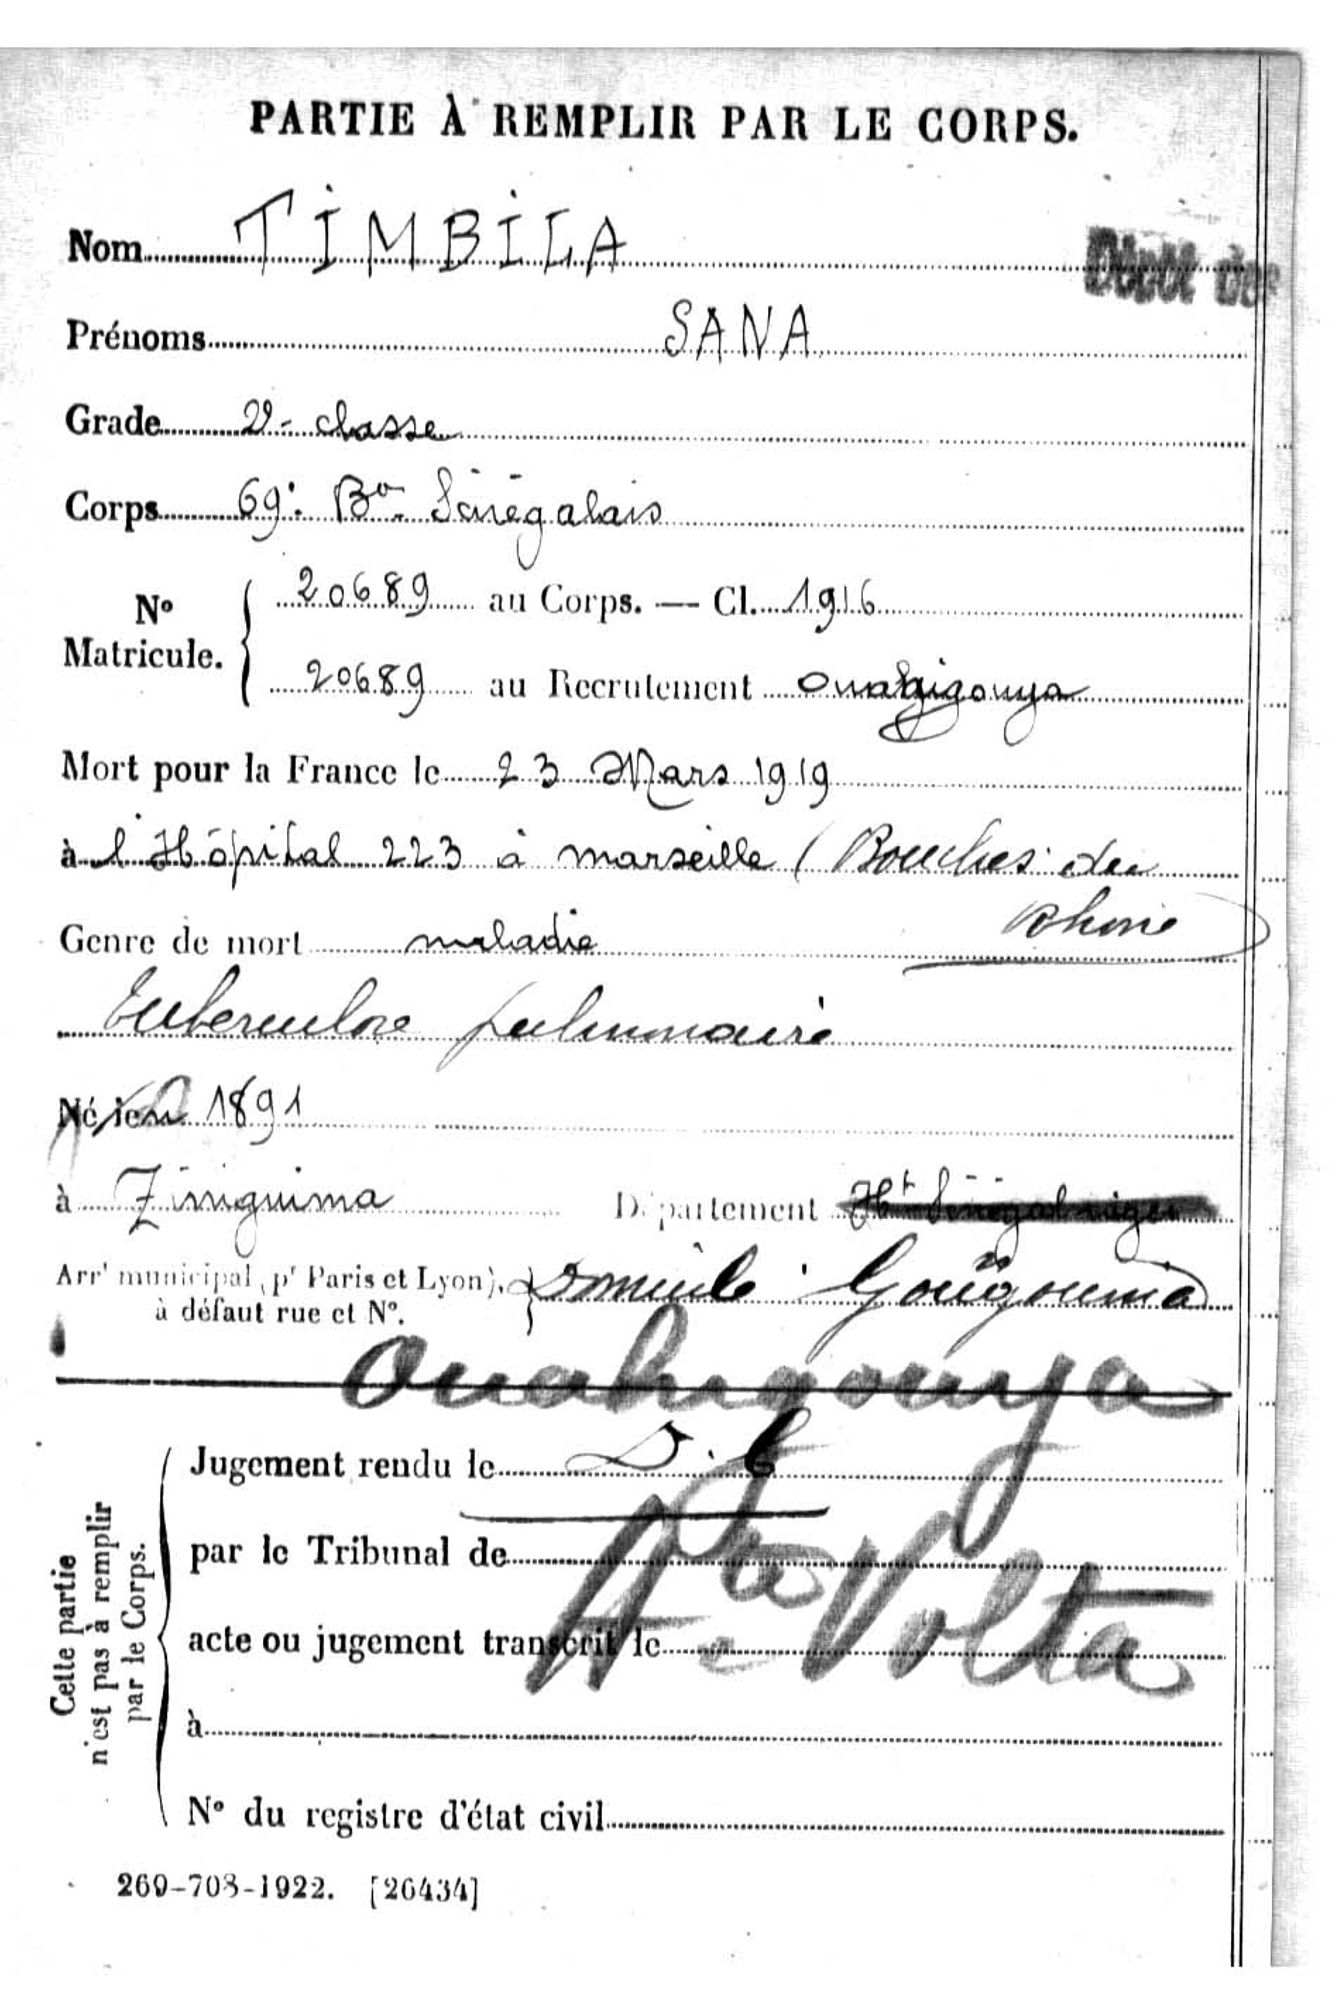 PARTIE À REMPLIR PAR LE CORPS.
Nom TIMBILA
Dépôt des
Prénoms SANA
Grade 2e classe
Corps 69e Bon Sénégalais
No Matricule. 20689 au Corps. — Cl. 1916
20689 au Recrutement Ouahigouya
Mort pour la France le 23 Mars 1919
à l'Hôpital 223 à marseille (Bouches du
Rhone)
Genre de mort maladie
Tuberculose pulmonaire
Né en 1891
à Ziniguima Département Ht Sénégal niger
Arrt municipal (pr Paris et Lyon),
à défaut rue et No.
Domicile Gougouma
Ouahigouya
Jugement rendu le D.C
par le Tribunal de
Hte Volta
acte ou jugement transcrit le
à
No du registre d'état civil
Cette partie
n'est pas à remplir
par le Corps.
269-708-1922. [26434]